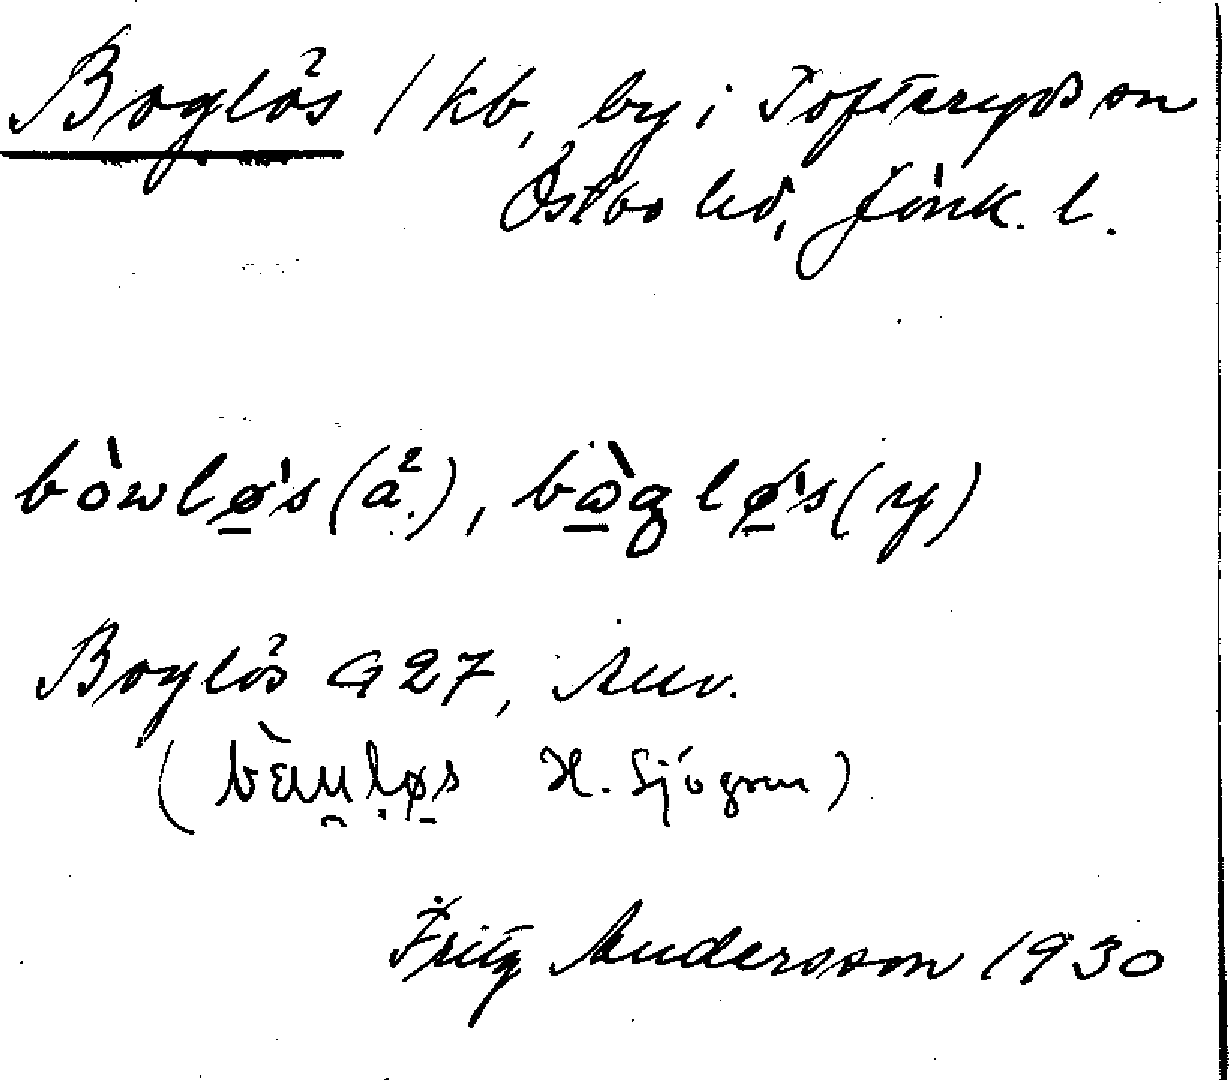 Boglös 1 kb, by i Tofteryds sn
Östbo hd, Jönk. l.
bòwlø̲'s (ä.), bὼ̲glø̲'s (y)
Boglös G 27,
(bὲu̯ḷø̲s H. Sjögren)
Fritz Andersson 1930